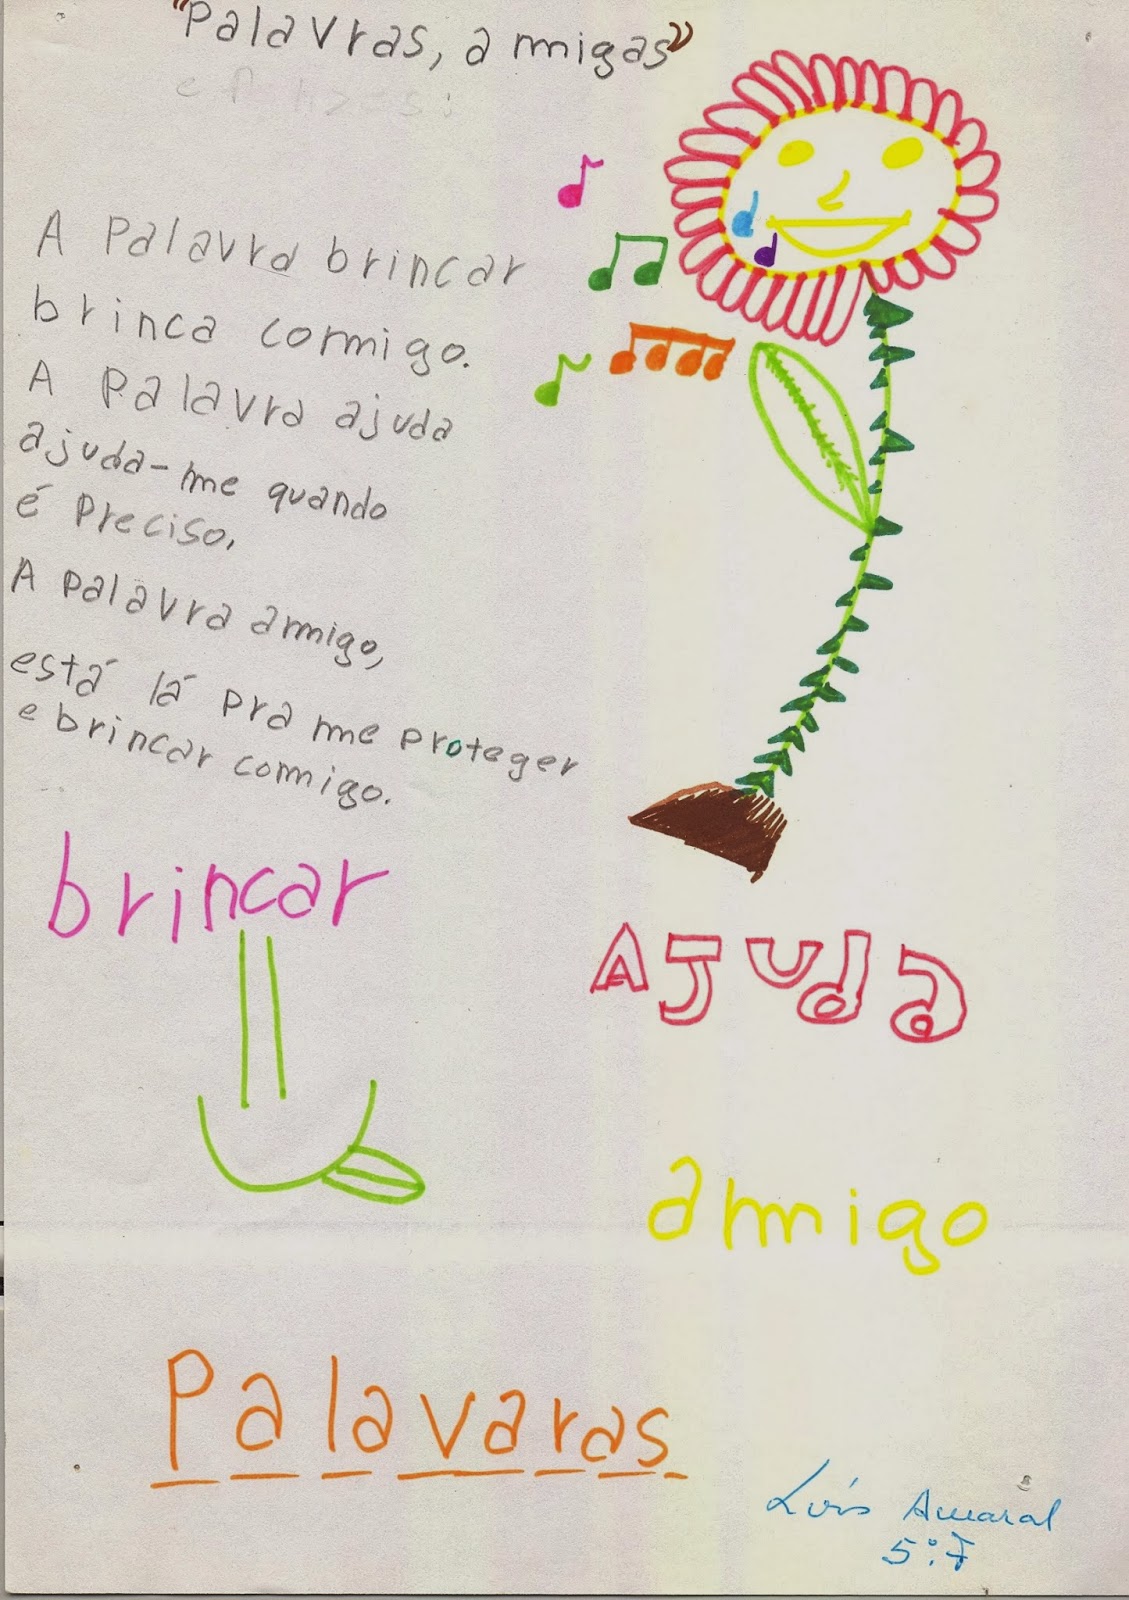 "Palavras, amigas"
A Palavra brincar
brinca comigo.
A Palavra ajuda
ajuda-me quando
é Preciso,
A Palavra amigo,
está lá pra me proteger
e brincar comigo.
brincar
AJuda
amigo
Palavaras
Luís Amaral
5º7